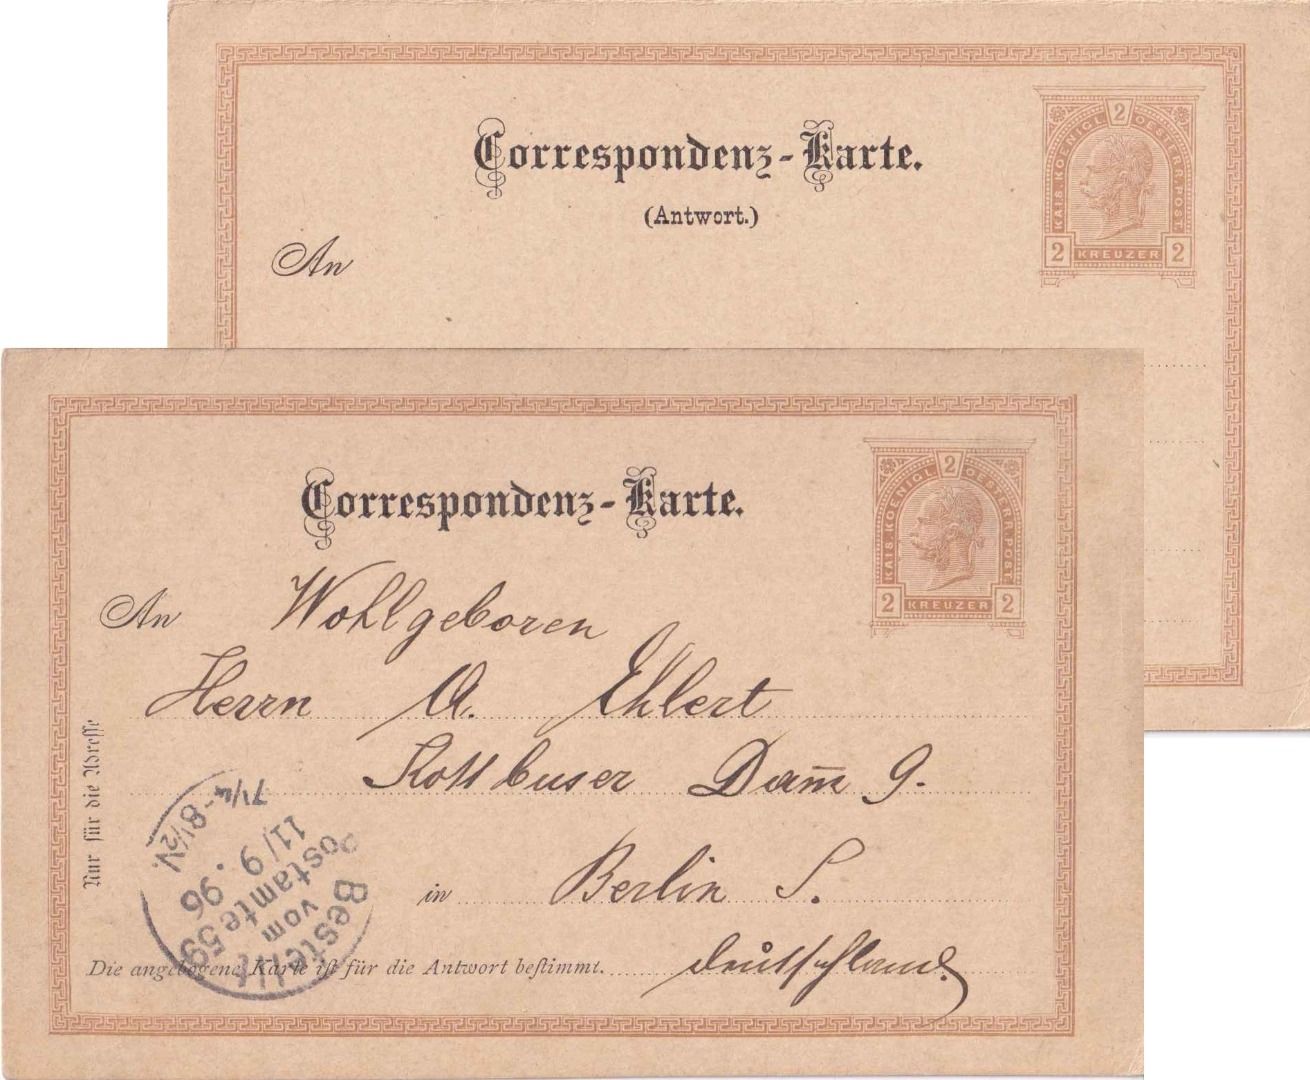 Correspondenz-Karte.
(Antwort.)
An
2
KAIS. KOENIGL. OESTERR. POST
2 KREUZER 2
Correspondenz-Karte.
2
KAIS. KOENIGL. OESTERR. POST
2 KREUZER 2
An Wohlgeboren
Herrn A. Ehlert
Kottbuser Dam̅ 9.
in Berlin S.
Deutschland.
Nur für die Adresse
Die angebogene Karte ist für die Antwort bestimmt.
Bestellt
vom
Postamte 59
11/9. 96
7¼-8½V.